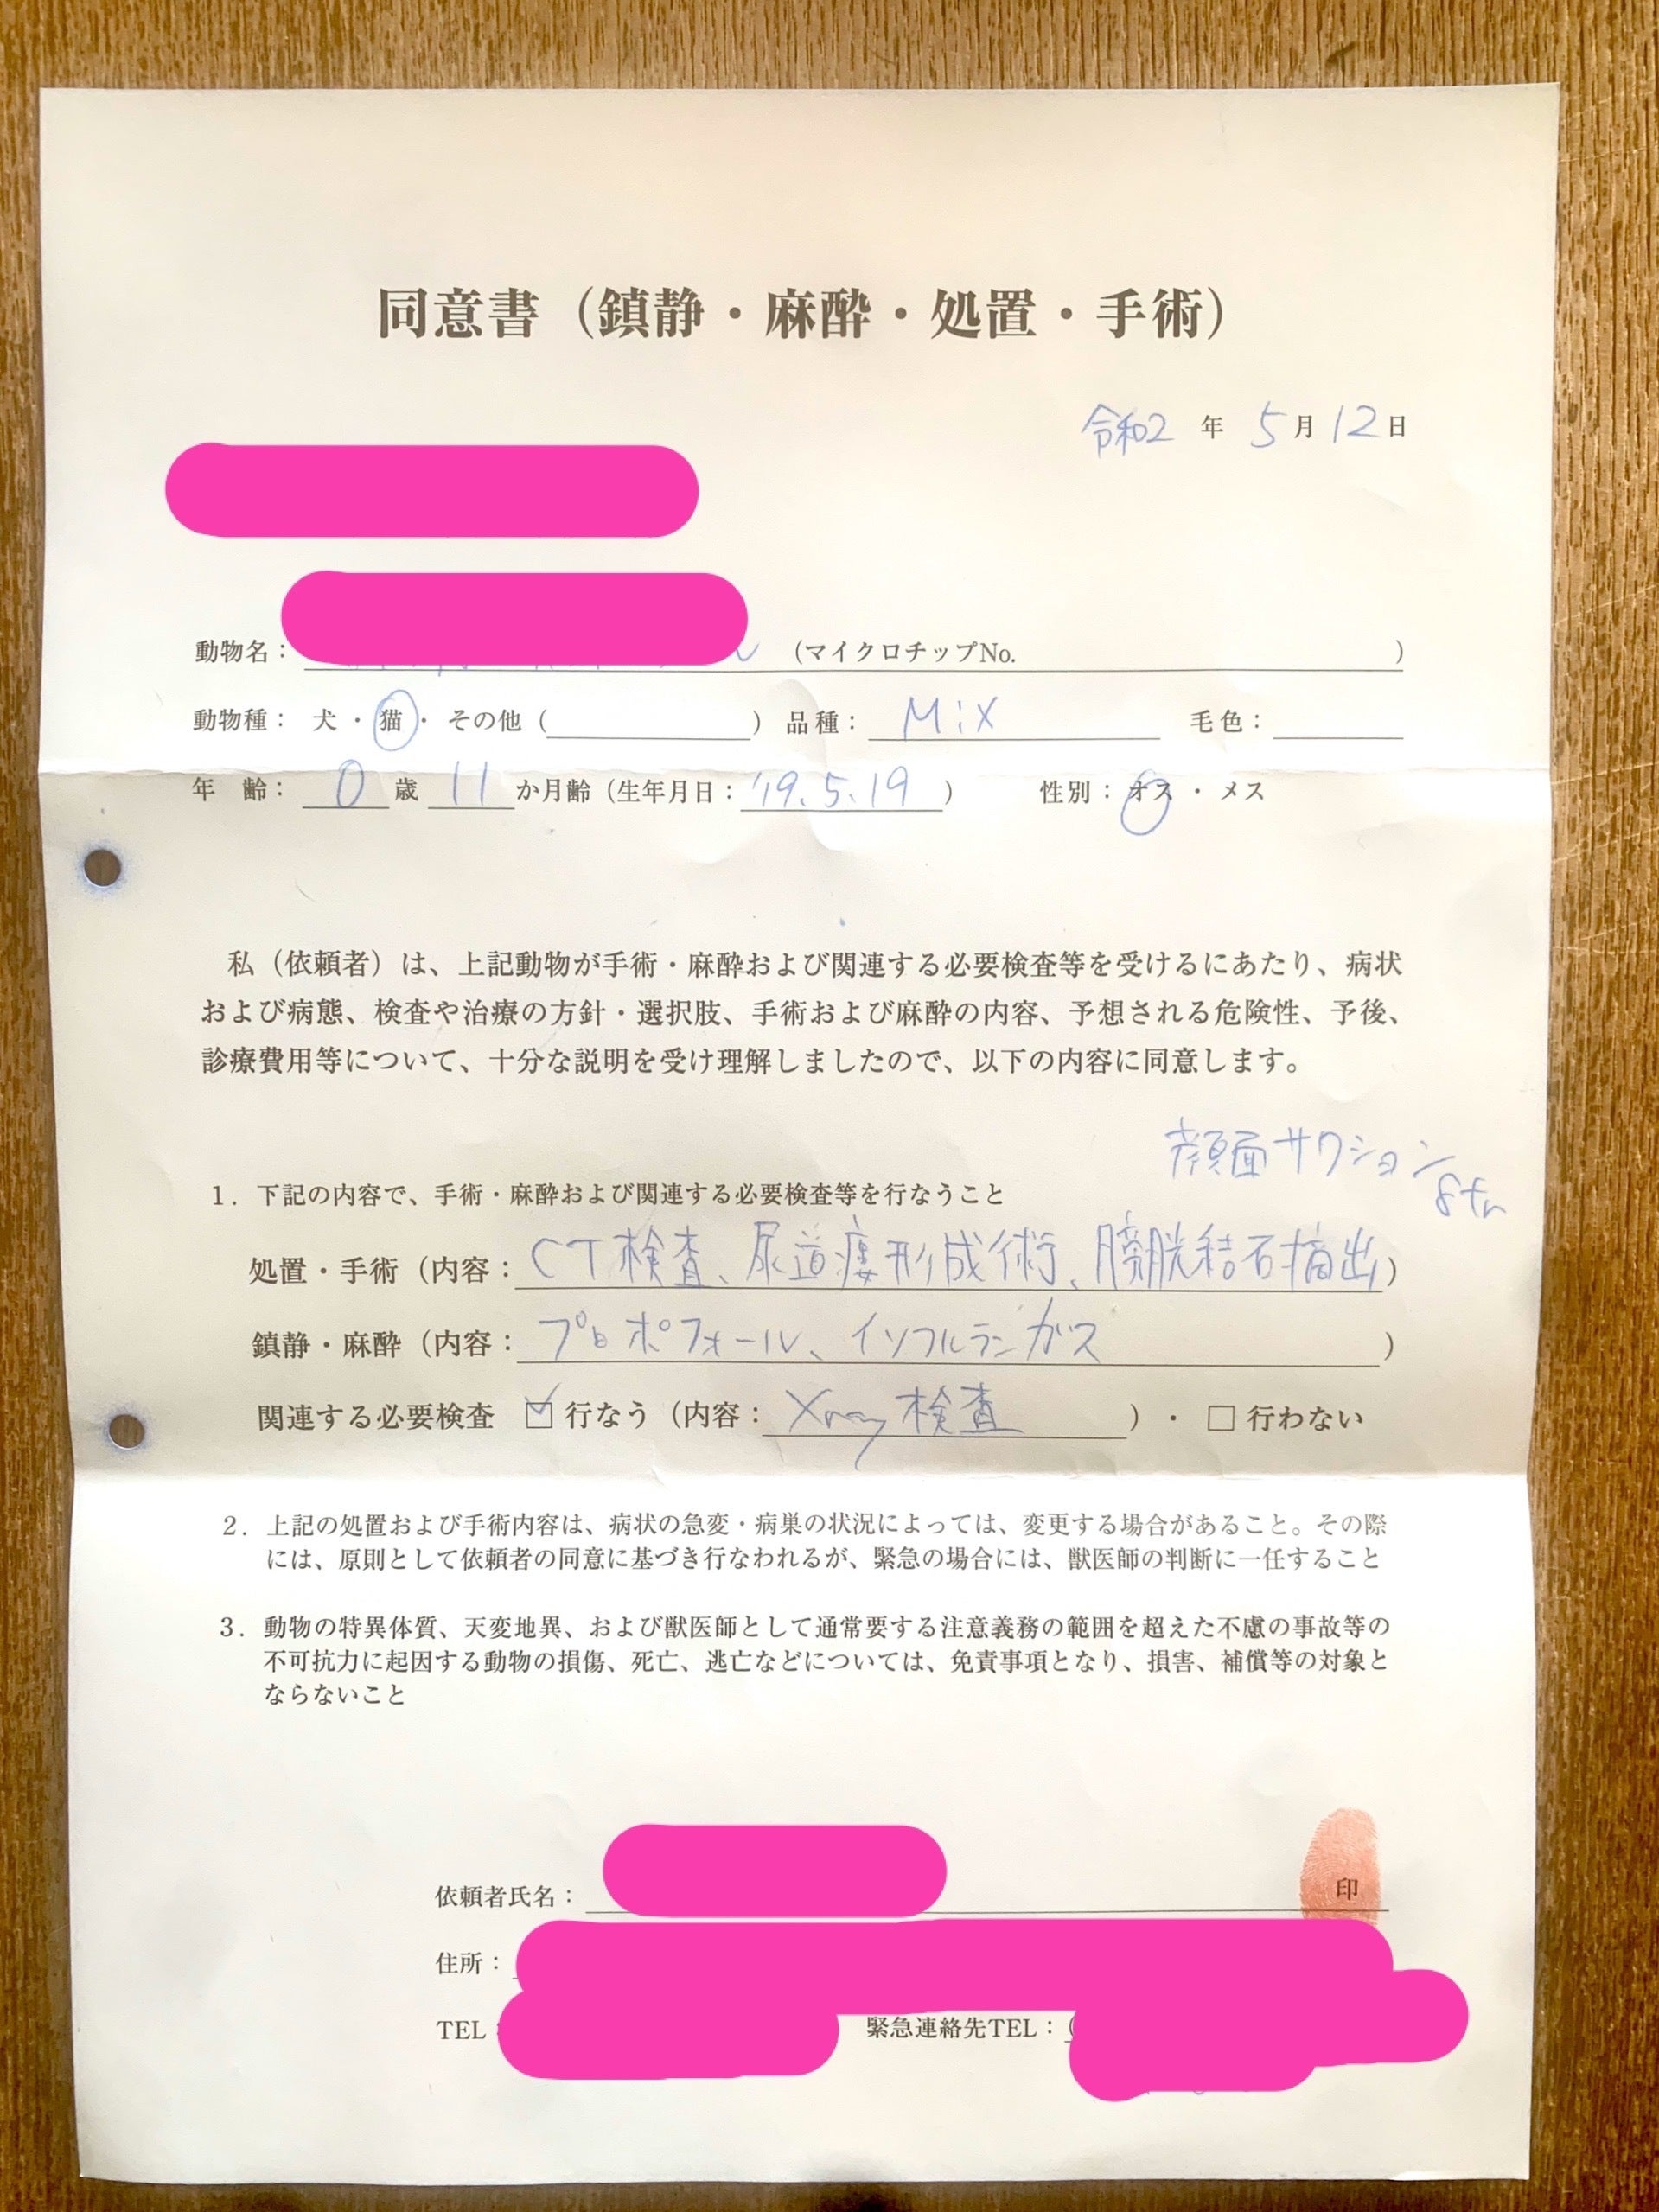 同意書（鎮静・麻酔・処置・手術）
令和2 年 5 月 12 日
動物名： （マイクロチップNo. ）
動物種： 犬 ・ 猫 ・ その他（ ） 品種： Mix 毛色：
年 齢： 0 歳 11 か月齢（生年月日： '19.5.19 ） 性別： オス ・ メス
私（依頼者）は、上記動物が手術・麻酔および関連する必要検査等を受けるにあたり、病状
および病態、検査や治療の方針・選択肢、手術および麻酔の内容、予想される危険性、予後、
診療費用等について、十分な説明を受け理解しましたので、以下の内容に同意します。
顔面サクション
1．下記の内容で、手術・麻酔および関連する必要検査等を行なうこと
処置・手術（内容： CT検査、尿道瘻形成術、膀胱結石摘出）
鎮静・麻酔（内容： プロポフォール、イソフルランガス ）
関連する必要検査 ☑ 行なう（内容： Xray検査 ）・ □ 行わない
2．上記の処置および手術内容は、病状の急変・病巣の状況によっては、変更する場合があること。その際
には、原則として依頼者の同意に基づき行なわれるが、緊急の場合には、獣医師の判断に一任すること
3．動物の特異体質、天変地異、および獣医師として通常要する注意義務の範囲を超えた不慮の事故等の
不可抗力に起因する動物の損傷、死亡、逃亡などについては、免責事項となり、損害、補償等の対象と
ならないこと
依頼者氏名： 印
住所：
TEL： 緊急連絡先TEL：（